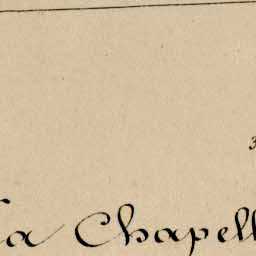 3
a Chapell